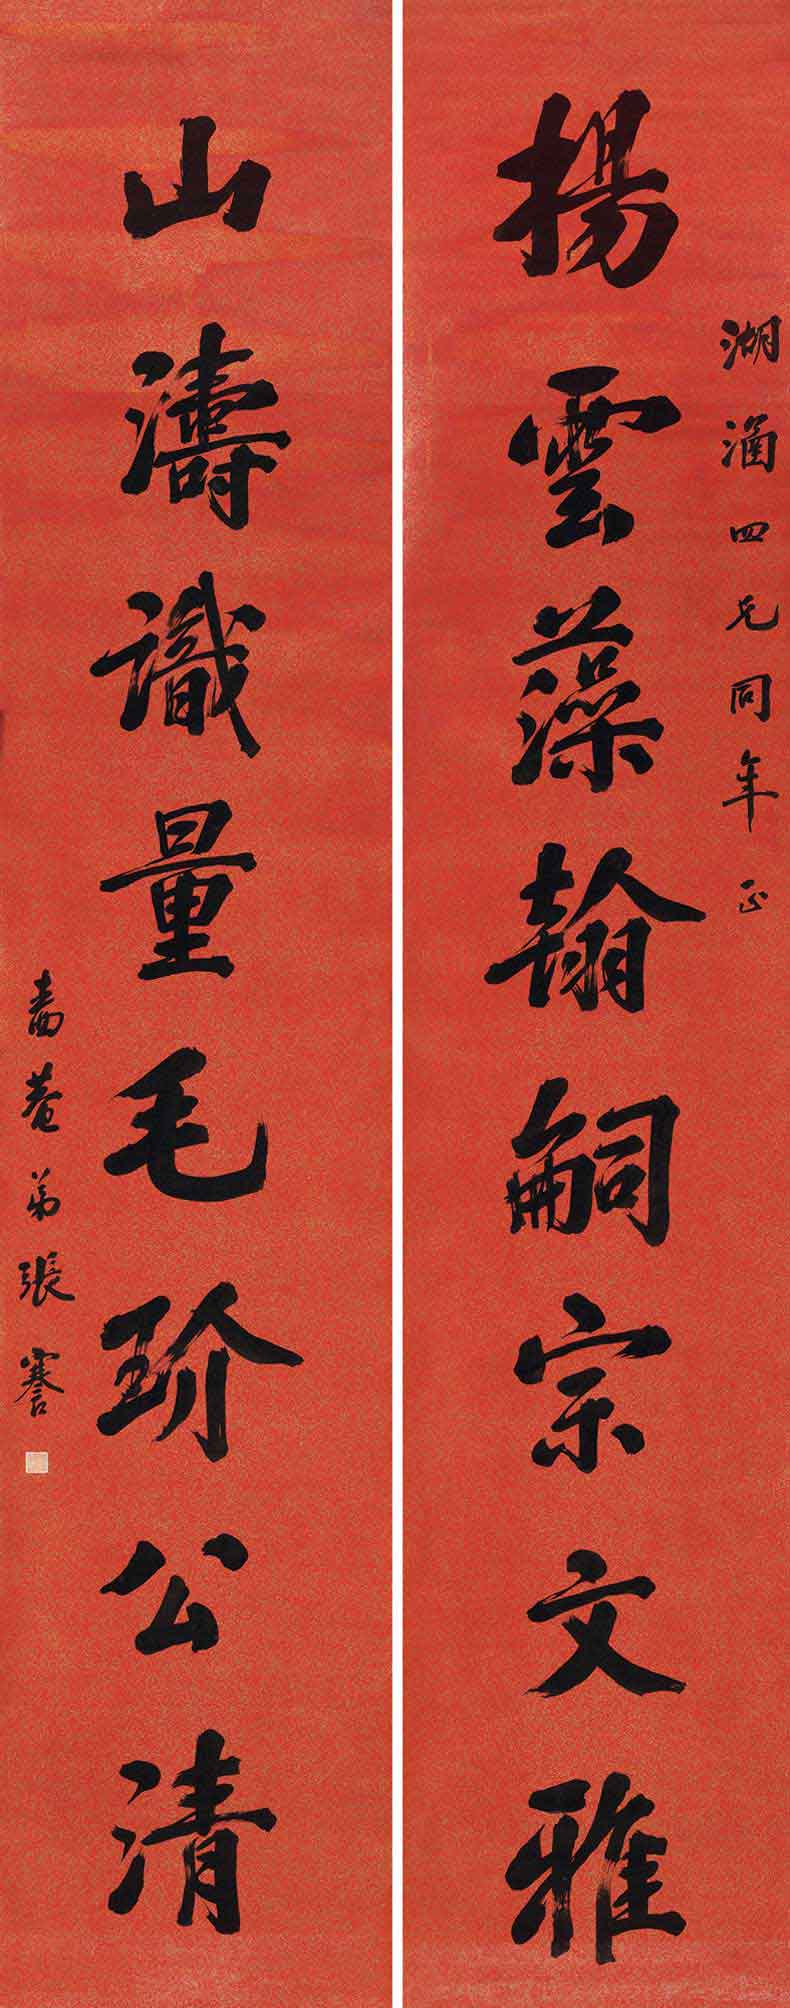 湖涵四兄同年正
揚雲藻翰嗣宗文雅
山濤識量毛玠公清
嗇菴弟張謇